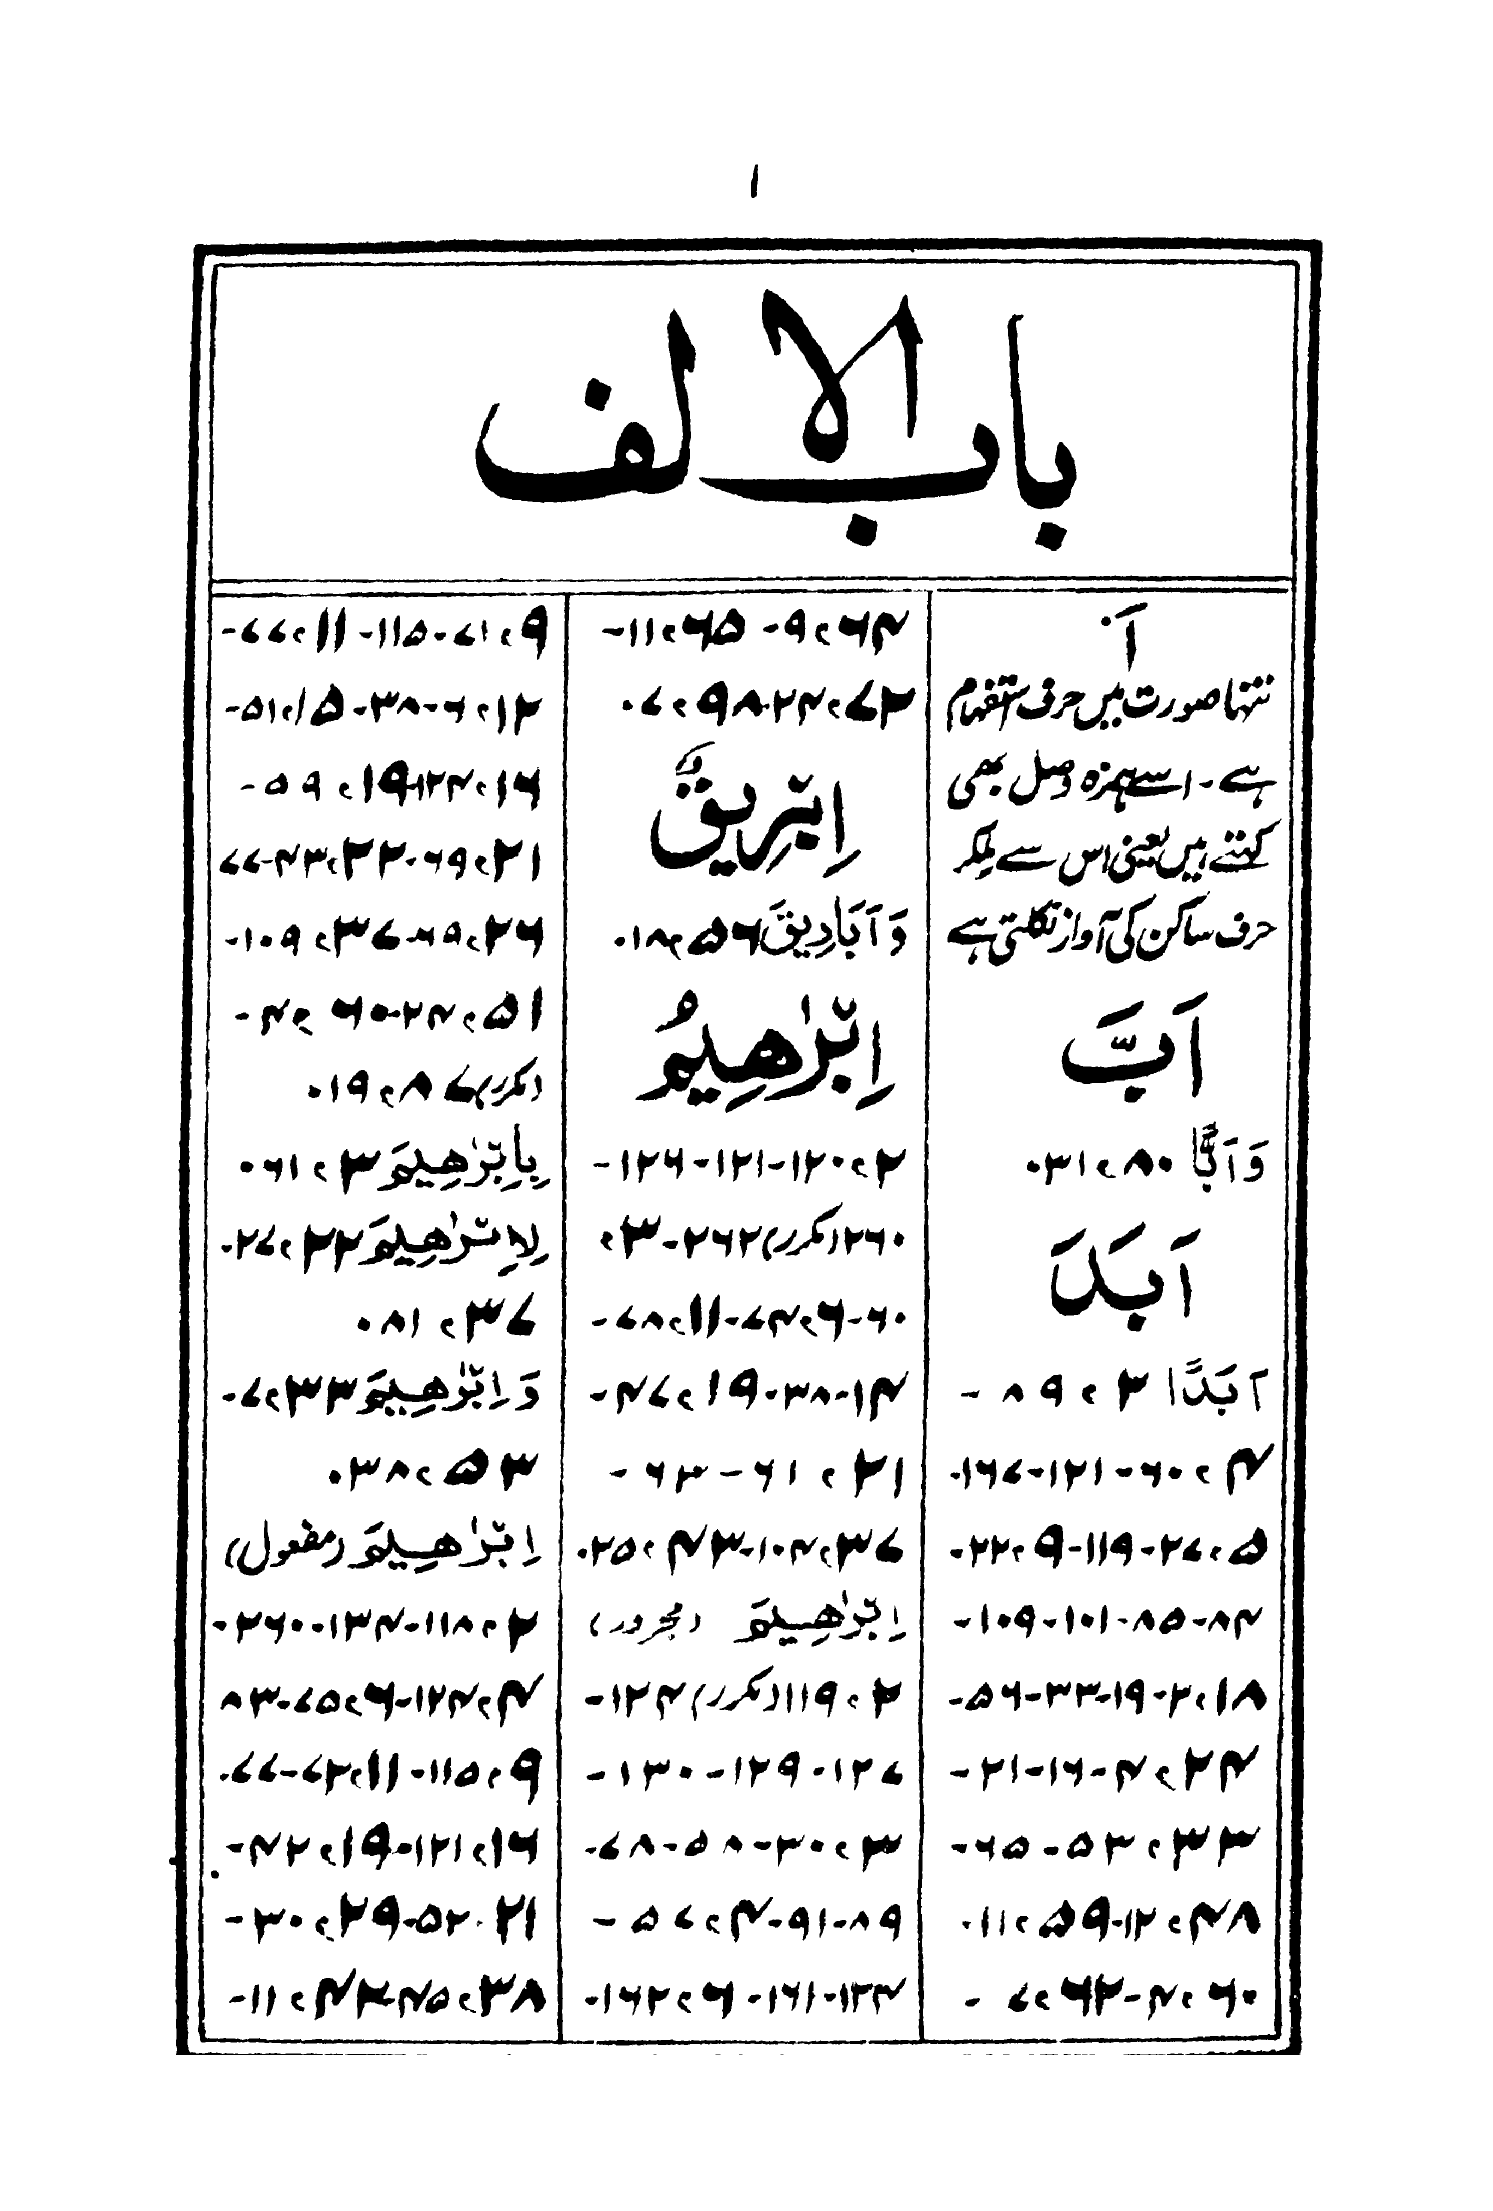 ا
باب الالف
اَ
تنہا صورت میں حرف استفہام
ہے ۔ اسے ہمزہ وصل بھی
کہتے ہیں یعنی اس سے ملکر
حرف ساکن کی آواز نکلتی ہے
اَبَّ
وَاَبًّا ۸۰،۳۱۔
اَبَدَ
اَبَدًا ۲،۸۹-
۴،۶۰-۱۲۱-۱۶۷۔
۵،۲۷-۱۱۹-۹،۲۲۔
۸۴-۸۵-۱۰۱-۱۰۹-
۱۸،۲-۱۹-۳۳-۵۶-
۲۴،۴-۱۶-۲۱-
۳۳،۵۳-۶۵-
۴۸،۱۲-۵۹،۱۱۔
۶۰،۴-۶۲،۷-
۶۴،۹-۶۵،۱۱-
۷۲،۲۴-۹۸،۷۔
اِبْرِيقٌ
وَاَبَارِيقَ ۵۶،۱۸۔
اِبْرٰهِيمُ
۲،۱۲۰-۱۲۱-۱۲۶-
۲۶۰(مکرر)۲۶۲-۳،
۶۰-۶،۷۴-۱۱،۷۸-
۱۴-۳۸-۱۹،۴۷-
۲۱،۶۱-۶۳-
۳۷،۱۰۴-۴۳،۲۵۔
اِبْرٰهِيمَ (مجرور)
۲،۱۱۹(مکرر)۱۲۴-
۱۲۷-۱۲۹-۱۳۰-
۳،۳۰-۵۸-۷۸-
۸۹-۹۱-۴،۵۷-
۱۲۴-۱۶۱-۶،۱۶۲۔
۹،۷۱-۱۱۵-۱۱،۷۷-
۱۲،۶-۳۸-۱۵،۵۱-
۱۶،۱۲۴-۱۹،۵۹-
۲۱،۶۹-۲۲،۴۳-۷۷
۲۶،۶۹-۳۷،۱۰۹-
۵۱،۲۴-۶۰،۴-
(مکرر)۸۷،۱۹۔
بِاِبْرٰهِيمَ ۳،۶۱۔
لِاِبْرٰهِيمَ ۲۲،۲۷۔
۳۷،۸۱۔
وَاِبْرٰهِيمَ ۳۳،۷-
۵۳،۳۸۔
اِبْرٰهِيمَ (مفعول)
۲،۱۱۸-۱۳۴-۲۶۰-
۴،۱۲۴-۶،۷۵-۸۳
۹،۱۱۵-۱۱،۷۲-۷۷۔
۱۶،۱۲۱-۱۹،۴۲-
۲۱،۵۲-۲۹،۳۰-
۳۸،۴۵-۴۲،۱۱-